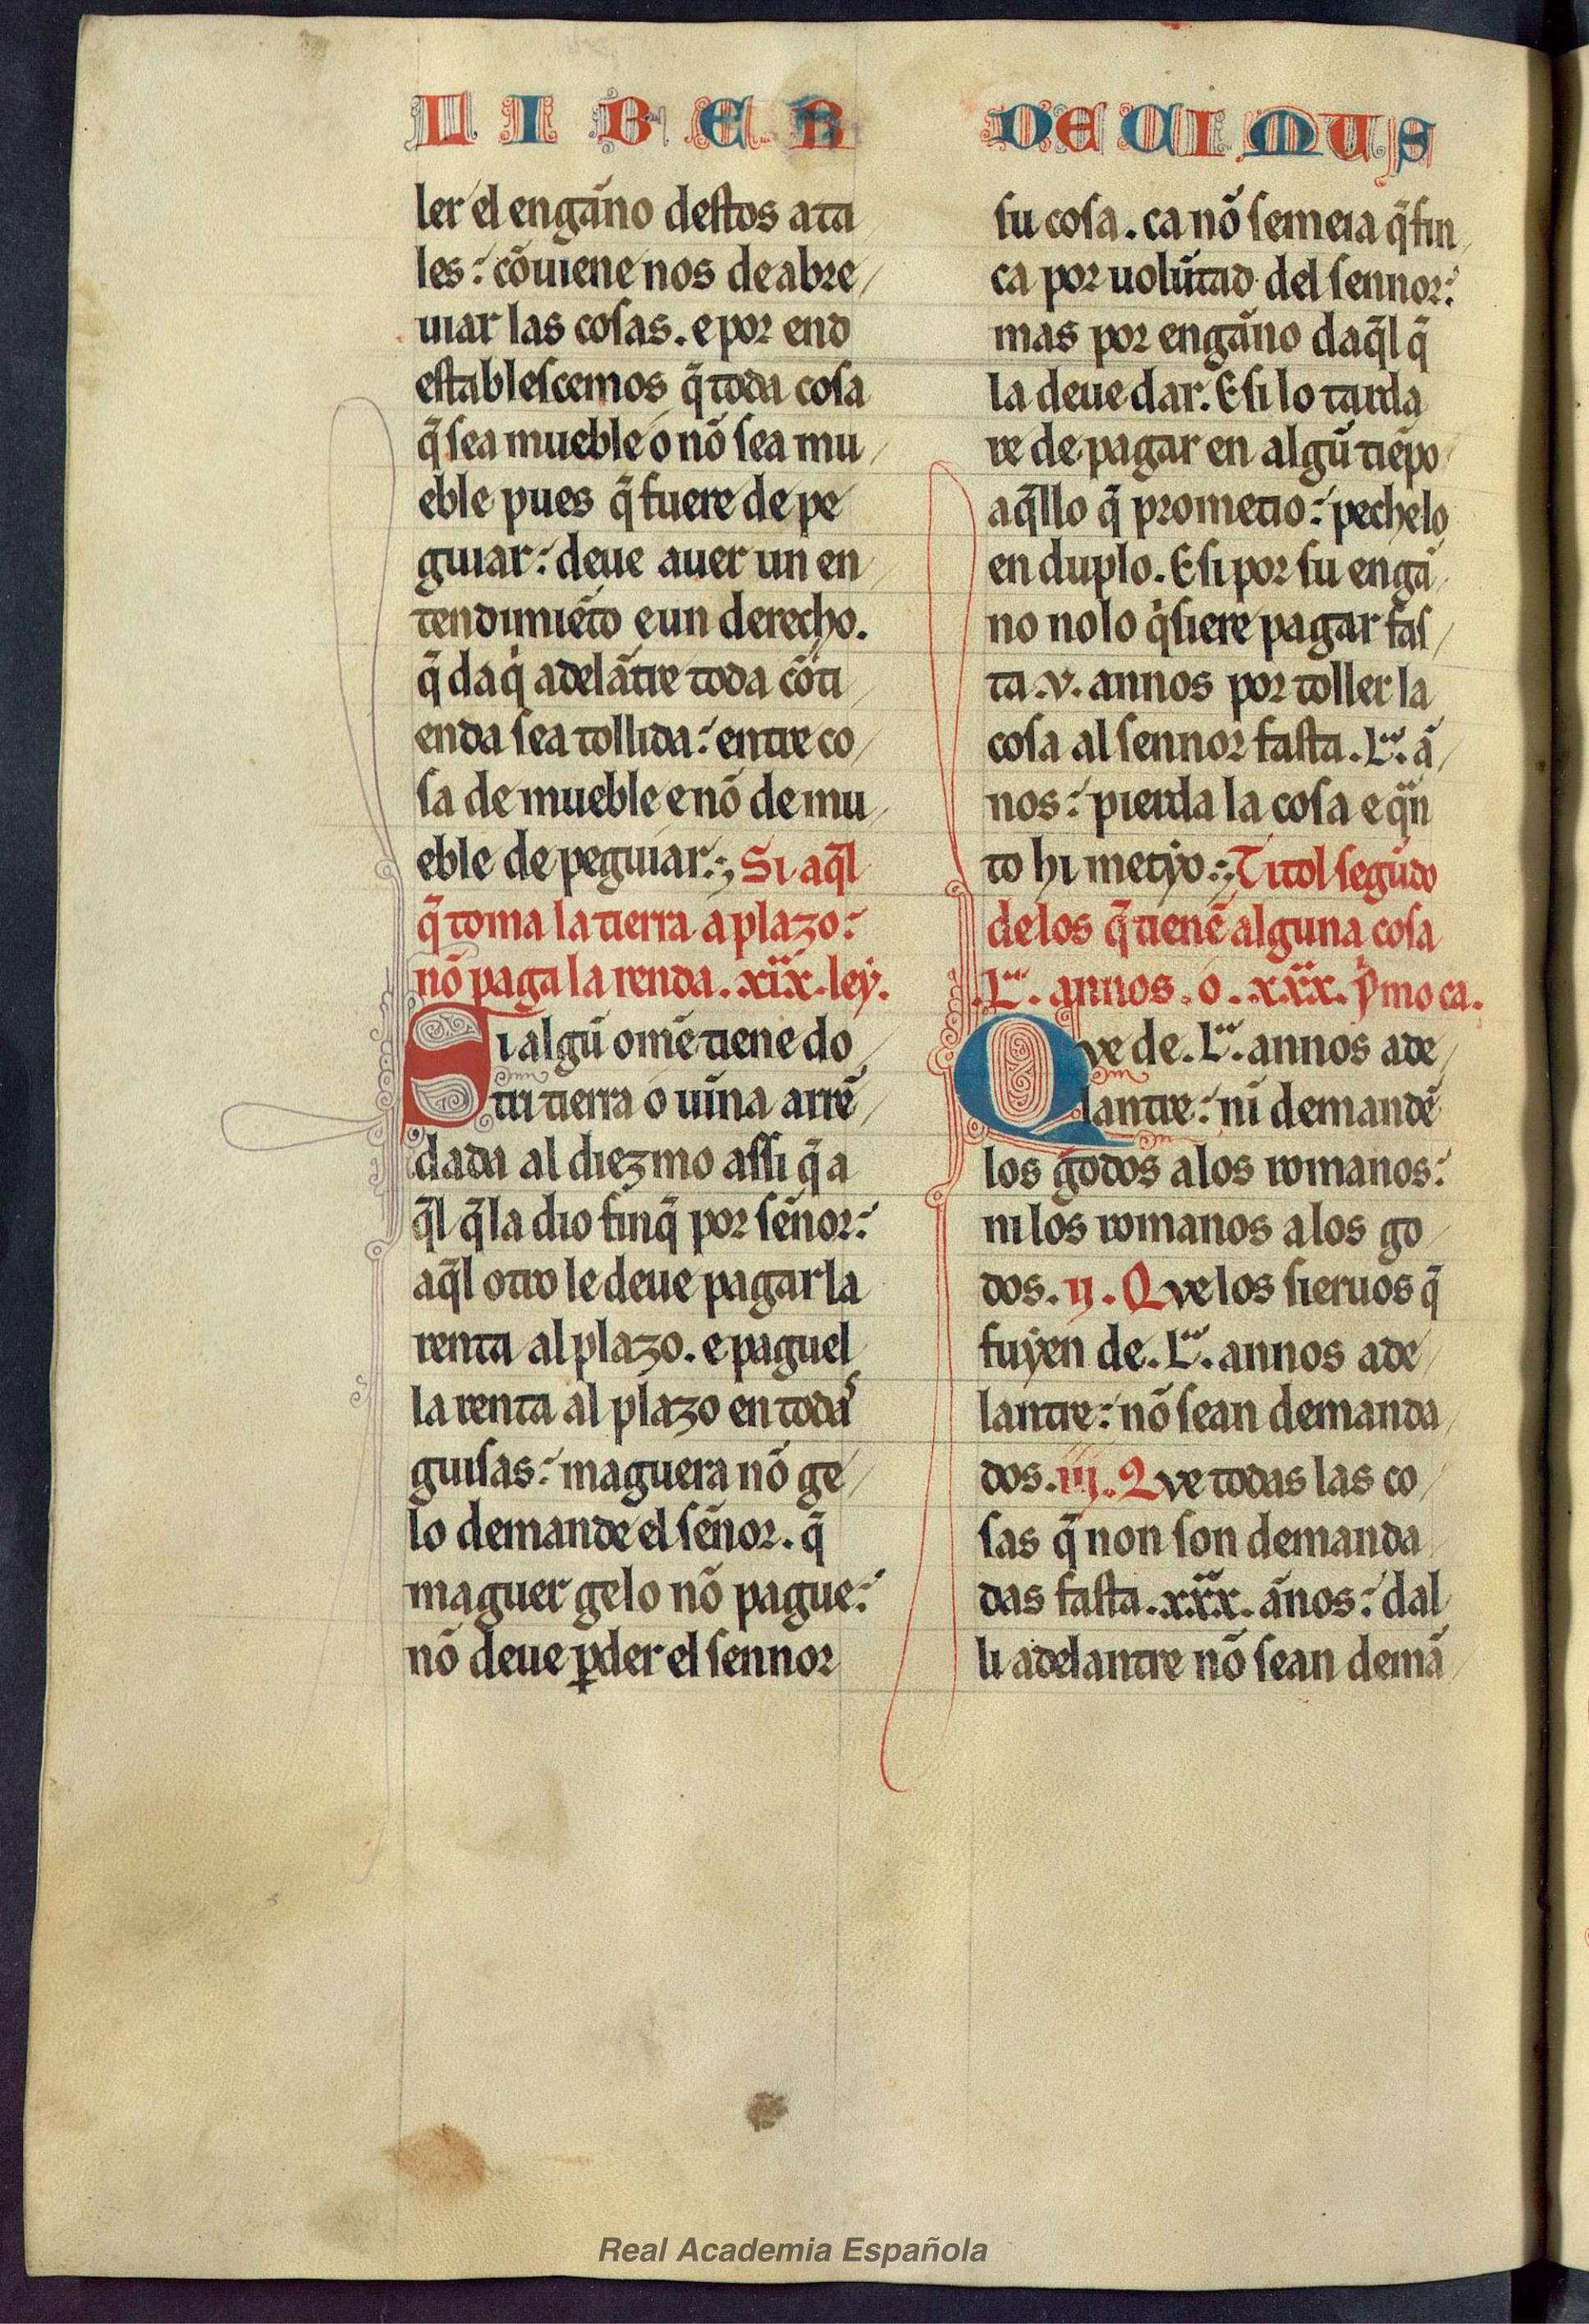 LIBER
DECIMUS
ler el engan̄o deſtos ata
les: cōuiene nos de abre
uiar las coſas. e por end
eſtableſcemos q̄ toda coſa
q̄ ſea mueble o nō ſea mu
eble pues q̄ fuere de pe
guiar: deue auer un en
tendimiēto e un derecho.
q̄ daq̇ adelātre toda cōti
enda ſea tollida: entre co
ſa de mueble e nō de mu
eble de peguiar: Si aq̄l
q̄ toma la tierra a plazo:
nō paga la renda. xix. leẏ.
Si algū ome tiene do
tri tierra o uin̄a arrē
dada al diezmo aſſi q̄ a
q̄l q̄ la dio finq̄ por ſen̄or:
aq̄l otro le deue pagar la
renta al plazo. e paguel
la renta al plazo en todaˢ
guiſas: maguera nō ge
lo demande el ſen̄or. q̄
maguer gelo nō pague:
nō deue ꝑder el ſennor
ſu coſa. ca nō ſemeia q̄ fin
ca por uolūtad del ſennor:
mas por engan̄o daq̄l q̄
la deue dar. E ſi lo tarda
re de pagar en algū tiēpo
aq̄llo q̄ prometio: pechelo
en duplo. E ſi por ſu engā
no nolo q̇ſiere pagar faſ
ta .v. annos por toller la
coſa al ſennor faſta .L.ª ā
nos: pierda la coſa e qᵃn
to hi metẏo: Titol ſegūdo
delos q̄ tienē alguna coſa
.L.ª annos. o. xxx. pͥmo ca.
Que de .L.ª annos ade
lantre: ni demandē
los godos alos romanos:
ni los romanos alos go
dos. ij. Que los ſieruos q̄
fuẏen de .L.ª annos ade
lantre: nō ſean demanda
dos. iij. Que todas las co
ſas q̄ non ſon demanda
das faſta .xxx. an̄os: dal
li adelantre nō ſean demā
Real Academia Española